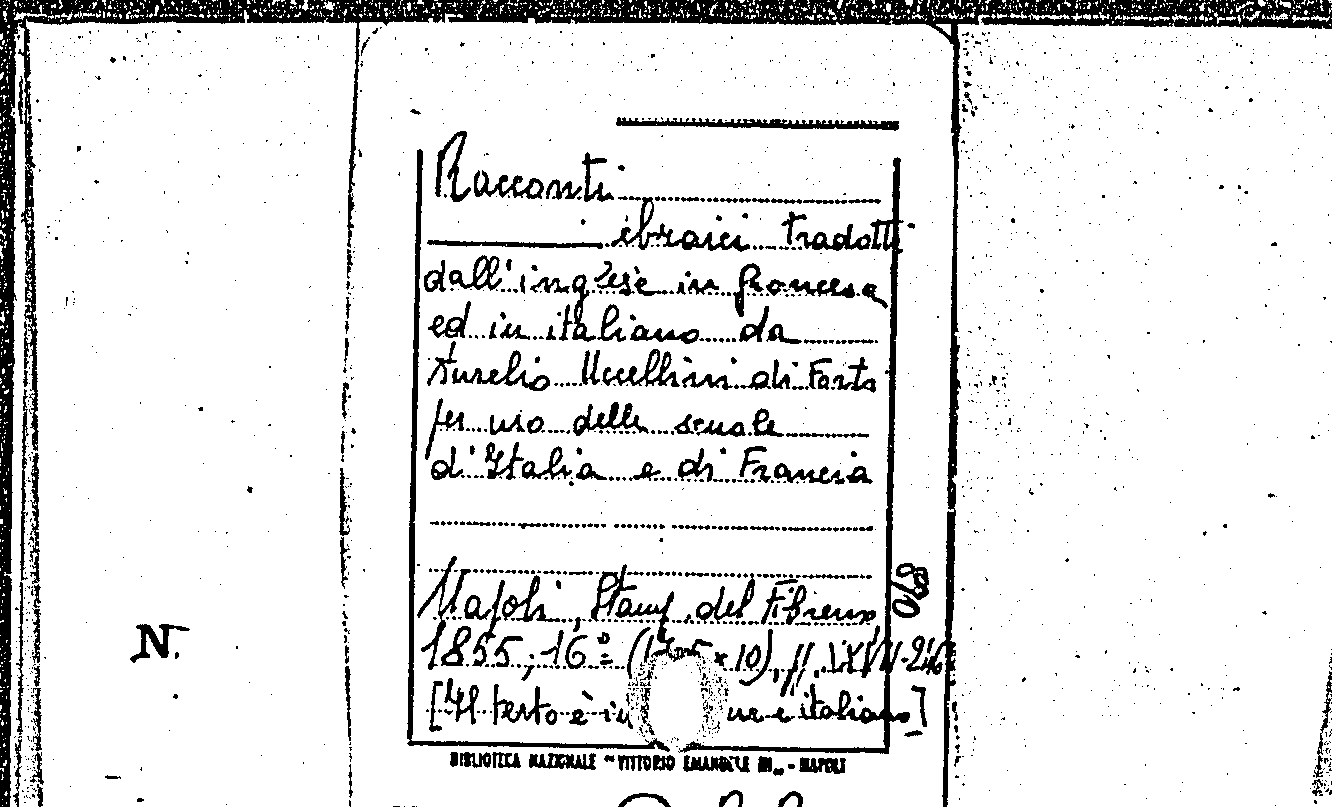 Racconti
ebraici tradotti
dall'inglese in francese
ed in italiano da
Aurelio Uccellini di Forte
per uso delle scuole
d'Italia e di Francia
Napoli, Stamp. del Fibreno
890
1855; 16º (17 × 10), pp. XXVII-246
N.
[Il testo è in e italiano]
BIBLIOTECA NAZIONALE "VITTORIO EMANUELE III„ - NAPOLI